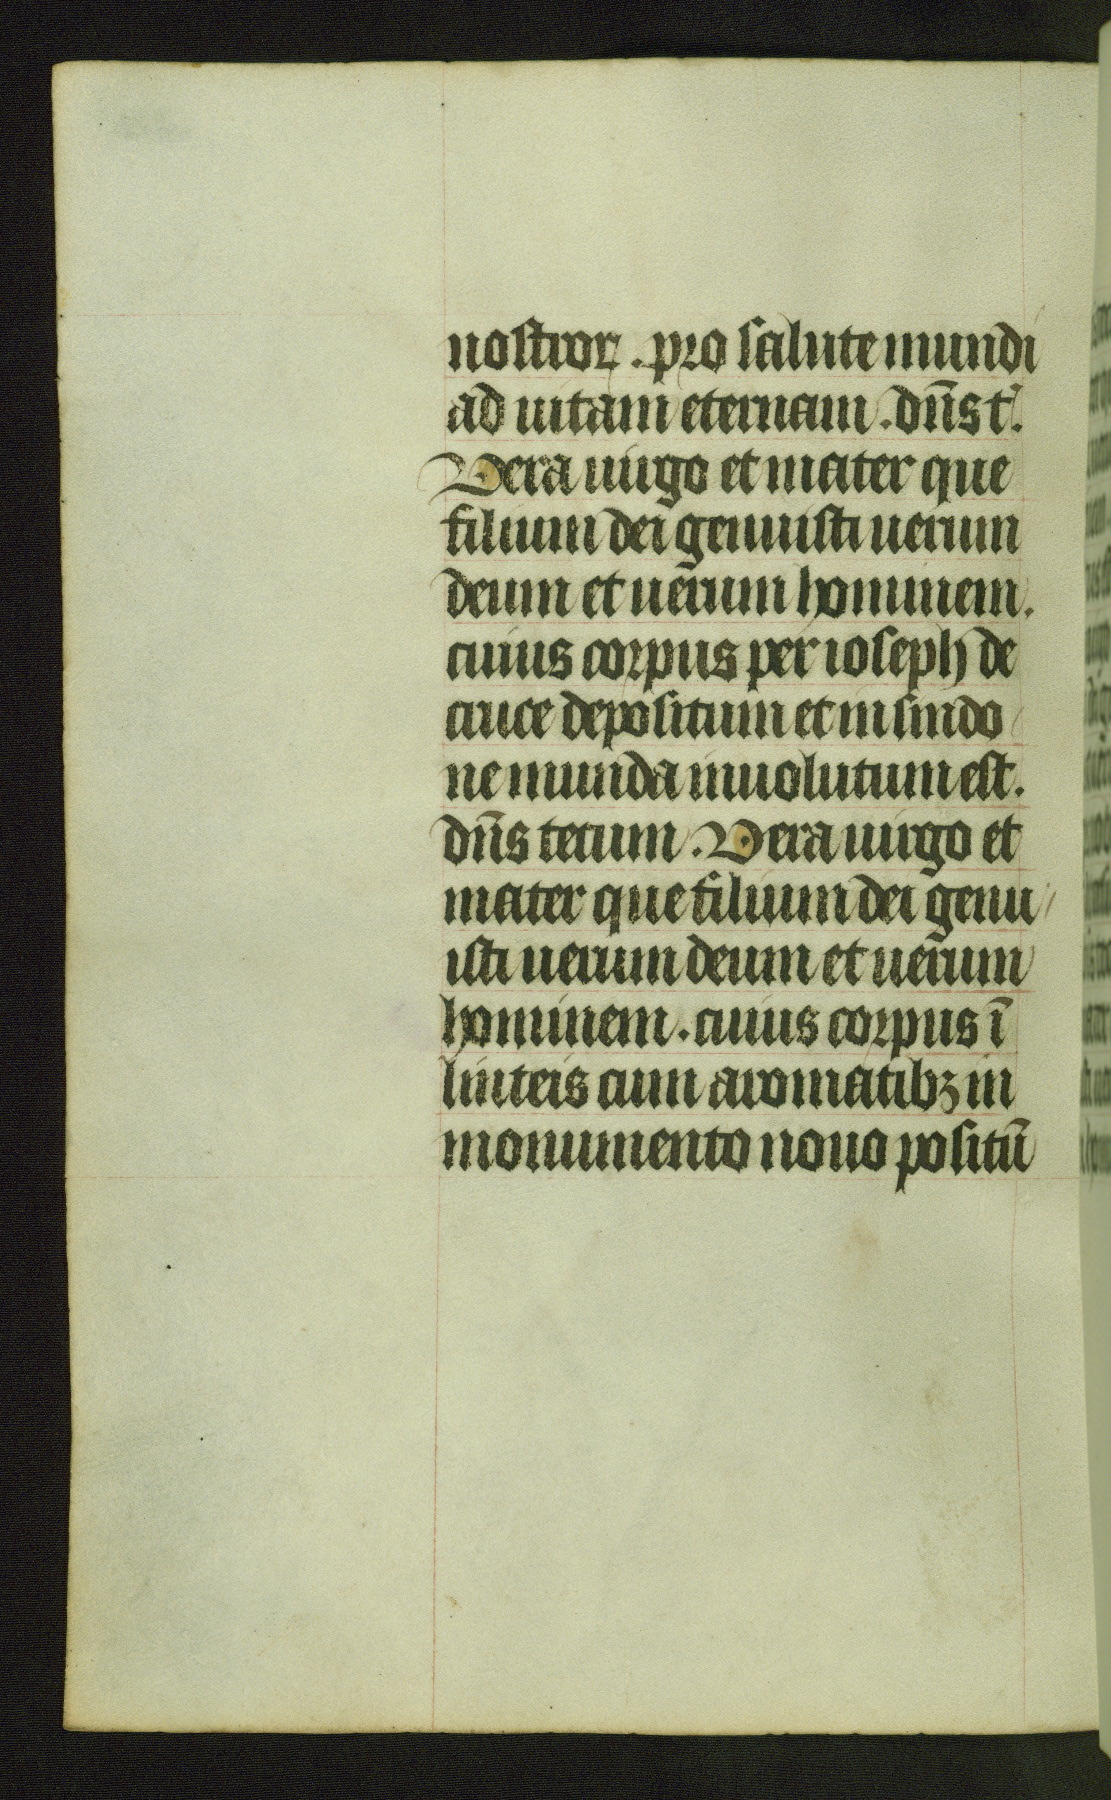 nostror . pro salute mundi
ad uitam eternam . dn̄s t.
Vera uirgo et mater que
filium dei genuisti uerum
deum et uerum hominem.
cuius corpus per ioseph de
cruce depositum et in sindo
ne munda inuolutum est.
dn̄s tecum . Vera uirgo et
mater que filium dei genu
isti uerum deum et uerum
hominem . cuius corpus ī
linteis cum aromatibꝫ in
monumento nouo positū